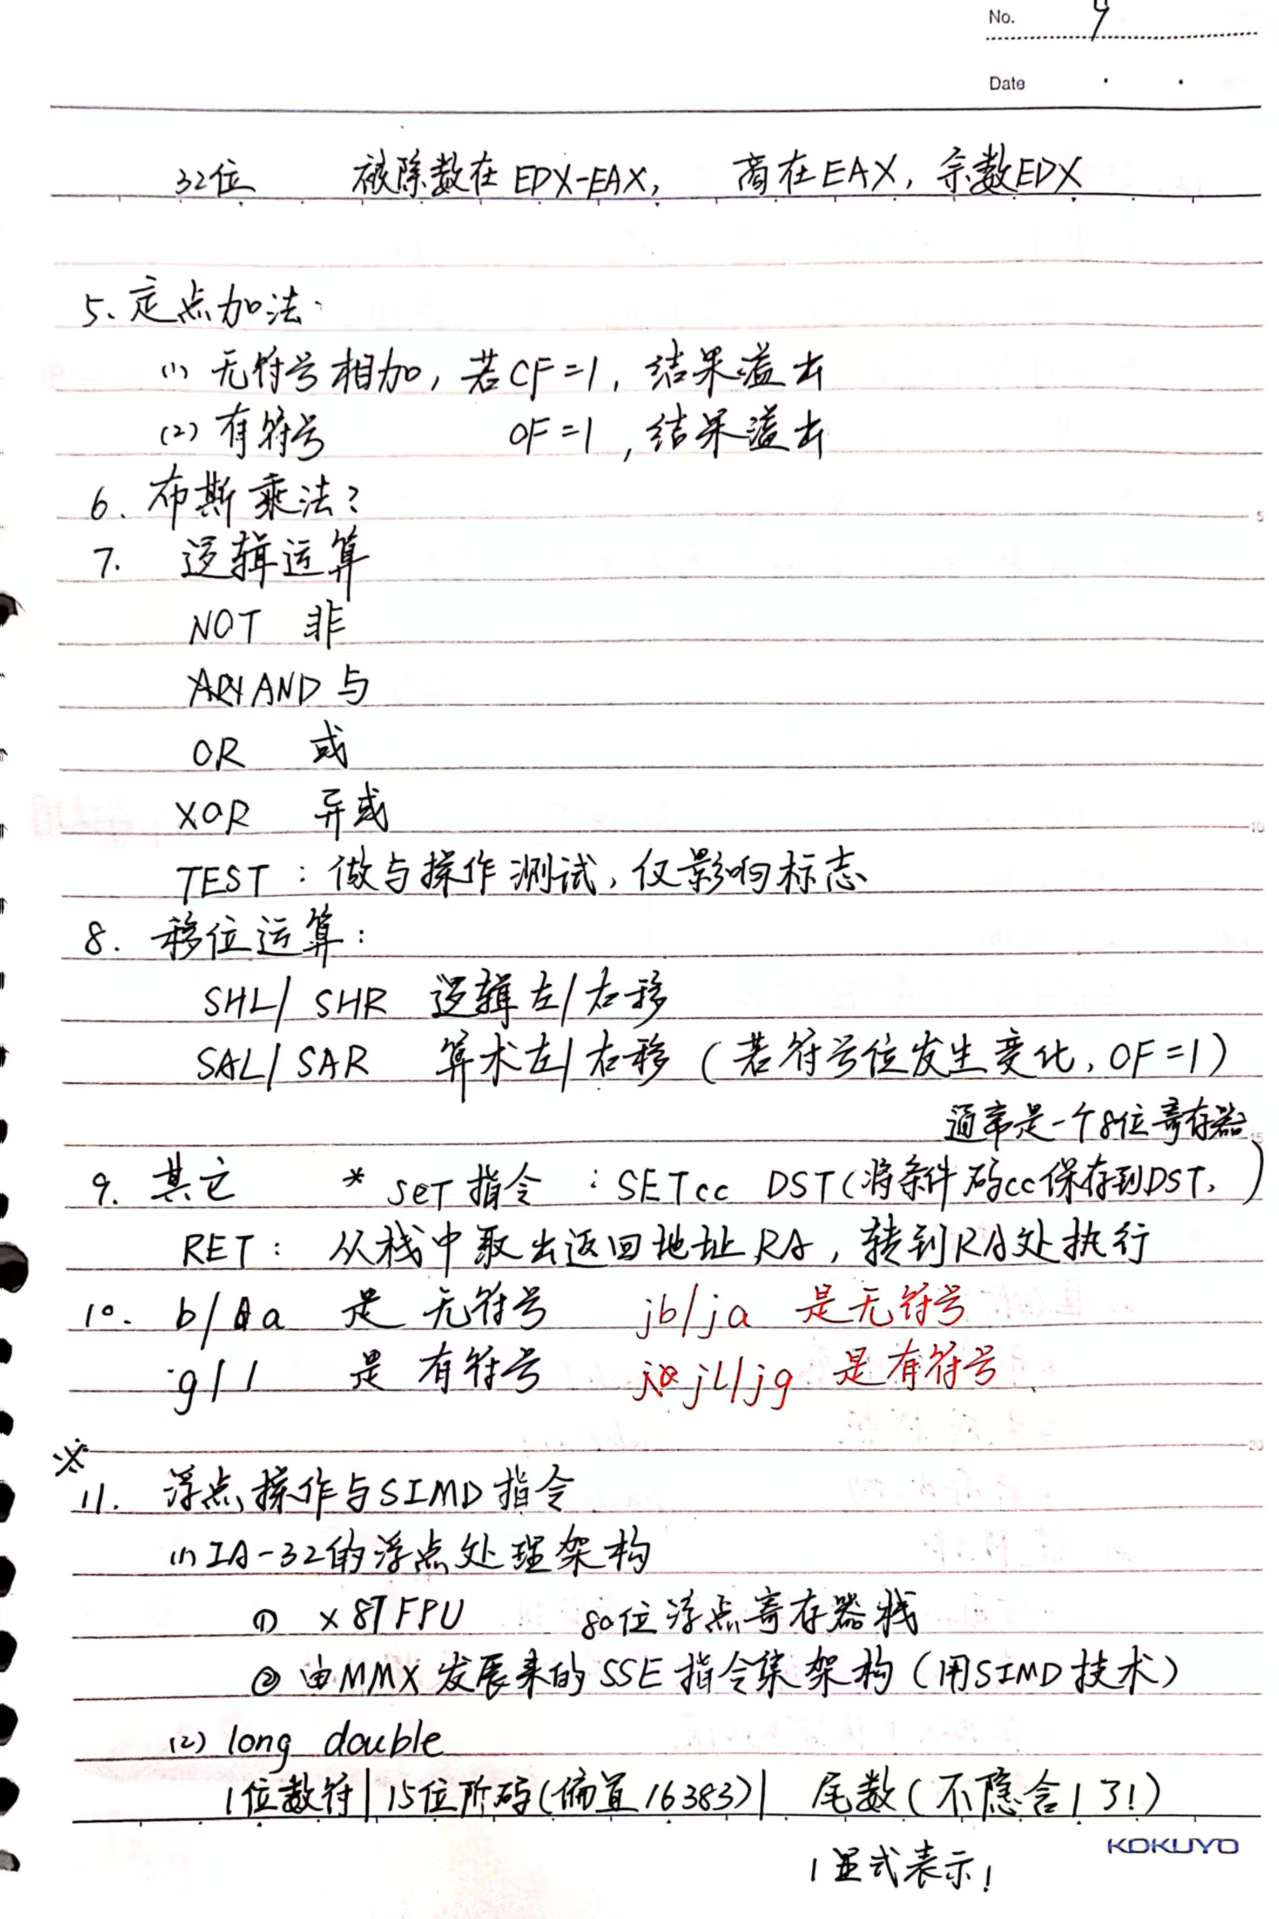 No. 9
Date
32位 被除数在EDX-EAX, 商在EAX, 余数EDX
5. 定点加法:
(1) 无符号相加, 若CF=1, 结果溢出
(2) 有符号 OF=1, 结果溢出
6. 布斯乘法?
7. 逻辑运算
NOT 非
AND 与
OR 或
XOR 异或
TEST : 做与操作测试, 仅影响标志
8. 移位运算:
SHL/ SHR 逻辑左/右移
SAL/ SAR 算术左/右移 (若符号位发生变化, OF=1)
通常是一个8位寄存器
9. 其它 * SET指令 : SETcc DST(将条件码cc保存到DST, )
RET: 从栈中取出返回地址RA, 转到RA处执行
10. b/a 是 无符号 jb/ja 是无符号
g/l 是 有符号 jl/jg 是有符号
※
11. 浮点操作与SIMD指令
(1) IA-32的浮点处理架构
① x87FPU 80位浮点寄存器栈
② 由MMX发展来的SSE指令集架构 (用SIMD技术)
(2) long double
1位数符|15位阶码(偏置16383)| 尾数(不隐含1了!)
1显式表示!
5
10
15
20
KOKUYO